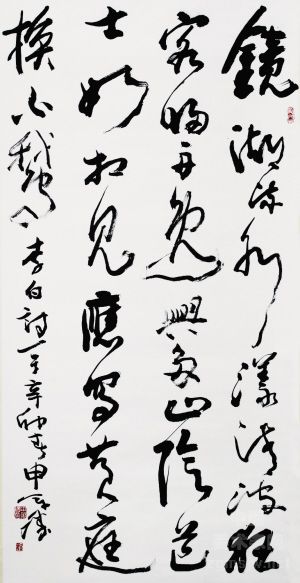 鏡湖流水漾清波狂
客歸舟逸興多山陰道
士如相見應寫黃庭
換白鵝 李白詩一首辛卯春申